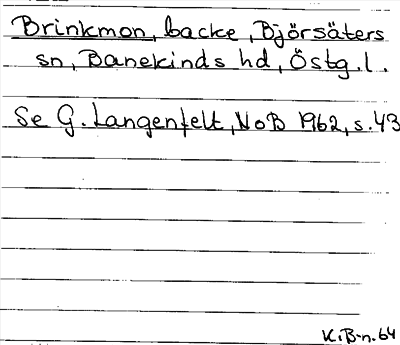 Brinkmon, backe, Björsäters
sn, Banekinds hd, Östg.l.
Se G. Langenfelt, NoB 1962, s.43
K.B-n.64